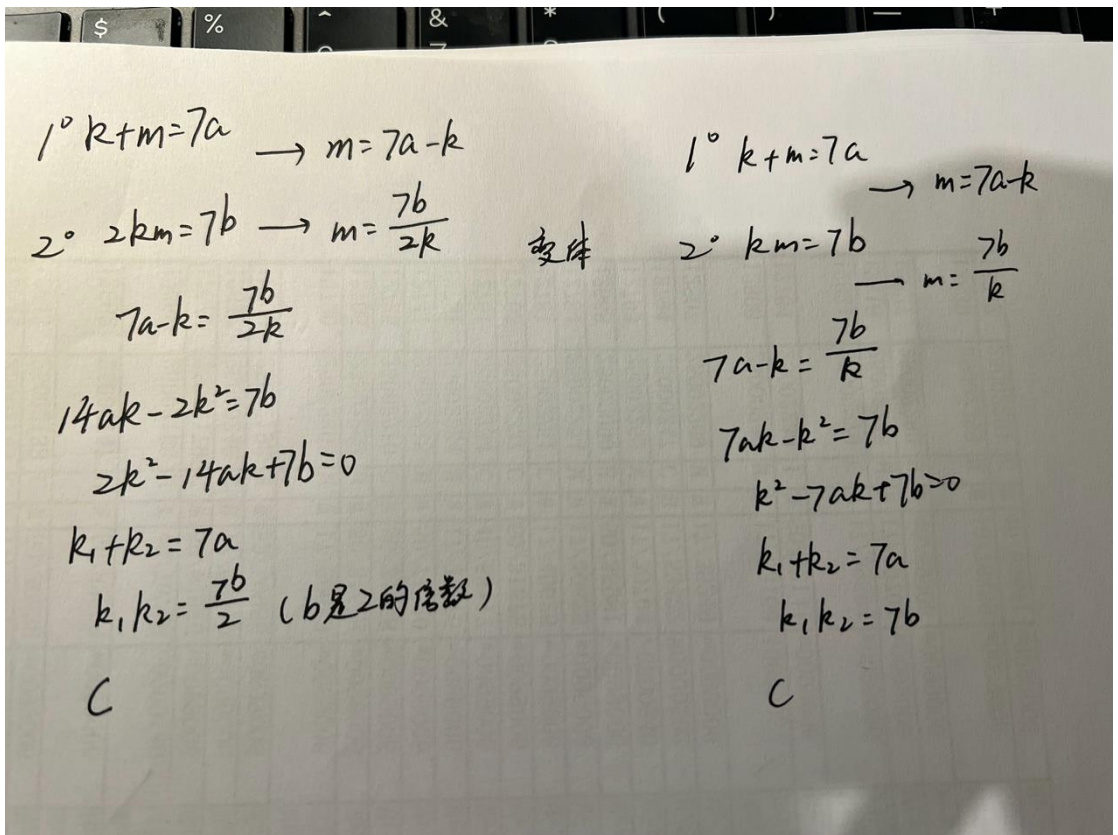 $ % ^ & * ( ) — +
1° k+m=7a → m=7a-k
2° 2km=7b → m=7b/2k
7a-k=7b/2k
14ak-2k²=7b
2k²-14ak+7b=0
k₁+k₂=7a
k₁k₂=7b/2 (b是2的倍数)
C
变体
1° k+m=7a → m=7a-k
2° km=7b — m=7b/k
7a-k=7b/k
7ak-k²=7b
k²-7ak+7b=0
k₁+k₂=7a
k₁k₂=7b
C